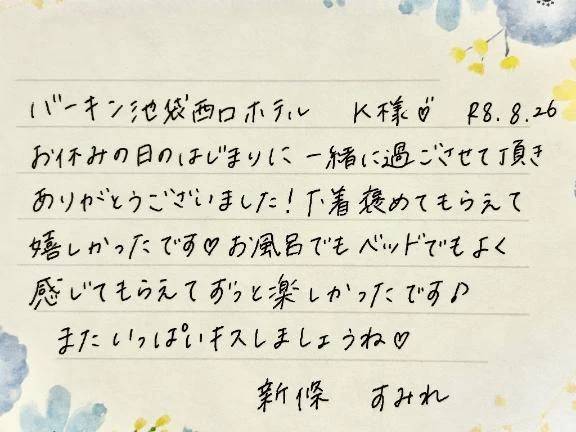 バーキン池袋西口ホテル K様♡ R8.8.26
お休みの日のはじまりに一緒に過ごさせて頂き
ありがとうございました！下着褒めてもらえて
嬉しかったです♡お風呂でもベッドでもよく
感じてもらえてずっと楽しかったです♪
またいっぱいキスしましょうね♡
新條 すみれ